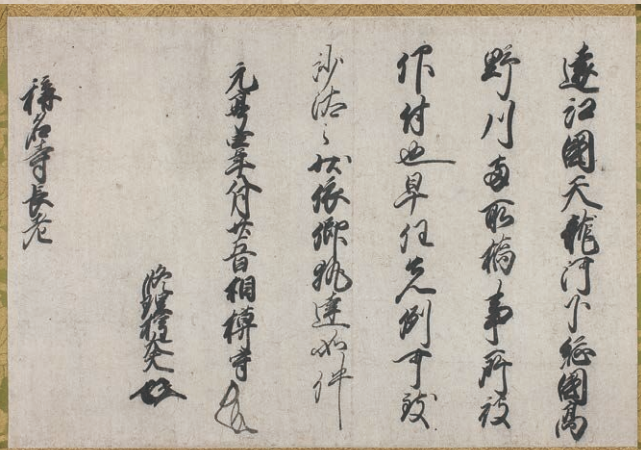 遠江國天龍河下総國高
野川両所橋事所被
仰付也早任先例可致
沙汰之状依仰執達如件
元亨四年八月廿五日相模守
修理権大夫
稱名寺長老